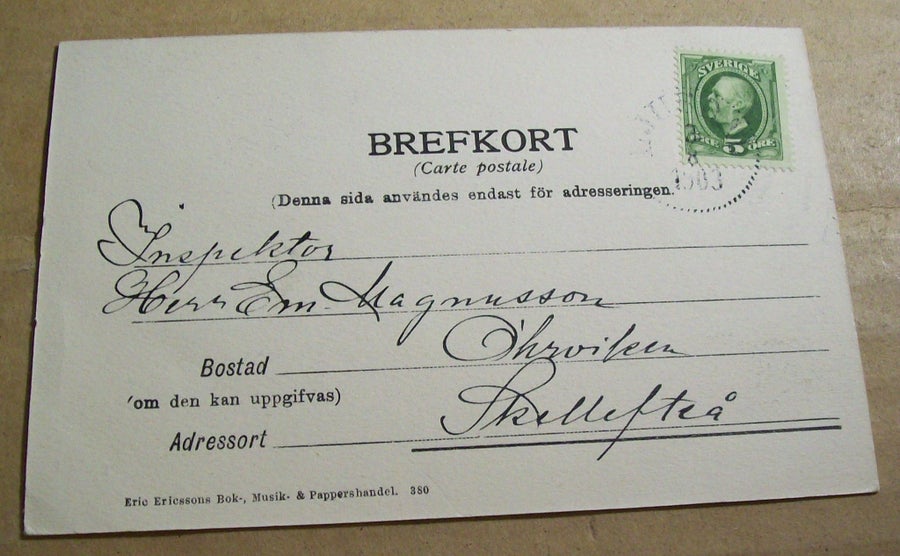 SVERIGE
ÖRE 5 ÖRE
1903
BREFKORT
(Carte postale)
(Denna sida användes endast för adresseringen.
Inspektor
Herr Em Magnusson
Bostad Öhrviken
(om den kan uppgifvas)
Adressort Skellefteå
Eric Ericssons Bok-, Musik- & Pappershandel. 380